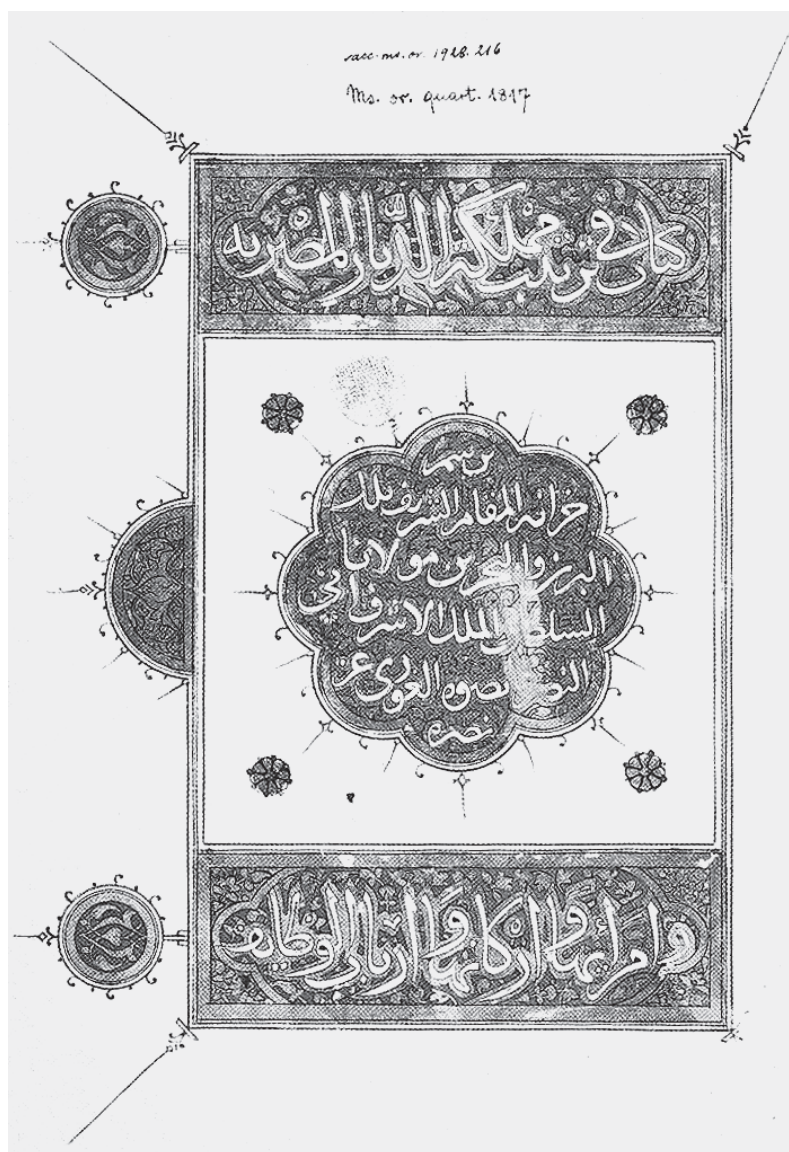 acc. ms. or. 1928. 216
Ms. or. quart. 1817
كتاب في ترتيب مملكة الديار المصريه
برسم
خزانه المقام الشريف ملك
البرين والبحرين مولانا
السلطان الملك الاشرف ابي
النصر قنصوه الغوري عز
نصره
وامرائها واركانها وارباب الوظايف